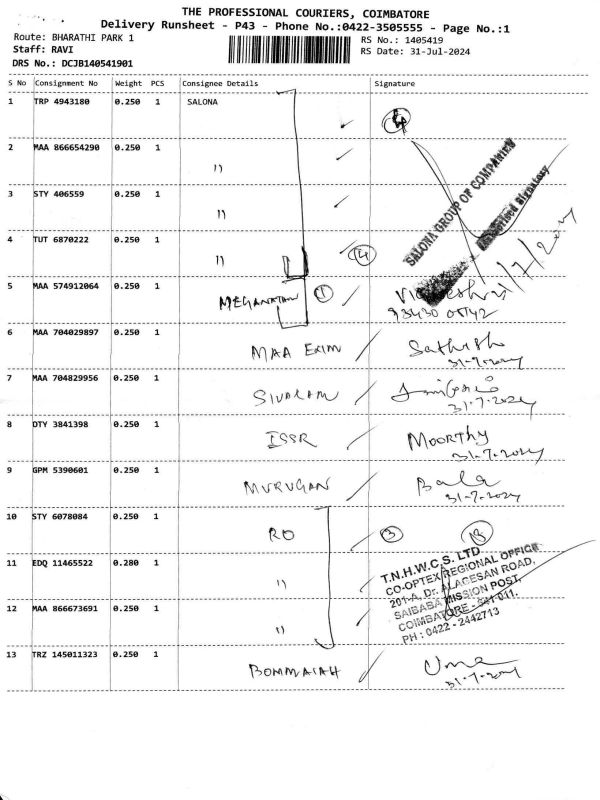 THE PROFESSIONAL COURIERS, COIMBATORE
Delivery Runsheet - P43 - Phone No.:0422-3505555 - Page No.:1
Route: BHARATHI PARK 1
Staff: RAVI
DRS No.: DCJB140541901
RS No.: 1405419
RS Date: 31-Jul-2024
S No Consignment No Weight PCS Consignee Details Signature
1 TRP 4943180 0.250 1 SALONA
2 MAA 866654290 0.250 1 "
3 STY 406559 0.250 1 "
4 TUT 6870222 0.250 1 " 4
SALONA GROUP OF COMPANIES
Authorised Signatory
5 MAA 574912064 0.250 1 MEGANATHAN 1
93430 05142
6 MAA 704029897 0.250 1 MAA EXIM Sathish
31-7-2024
7 MAA 704829956 0.250 1 SIVARAM
31-7-2024
8 DTY 3841398 0.250 1 ISSR MOORTHY
31-7-2024
9 GPM 5390601 0.250 1 MURUGAN Bala
31-7-2024
10 STY 6078084 0.250 1 RO 3 13
11 EDQ 11465522 0.280 1 "
12 MAA 866673691 0.250 1 "
T.N.H.W.C.S. LTD
CO-OPTEX REGIONAL OFFICE
201-A, Dr. ALAGESAN ROAD,
SAIBABA MISSION POST,
COIMBATORE - 641 011.
PH : 0422 - 2442713
13 TRZ 145011323 0.250 1 BOMMAIAH Uma
31-7-2024